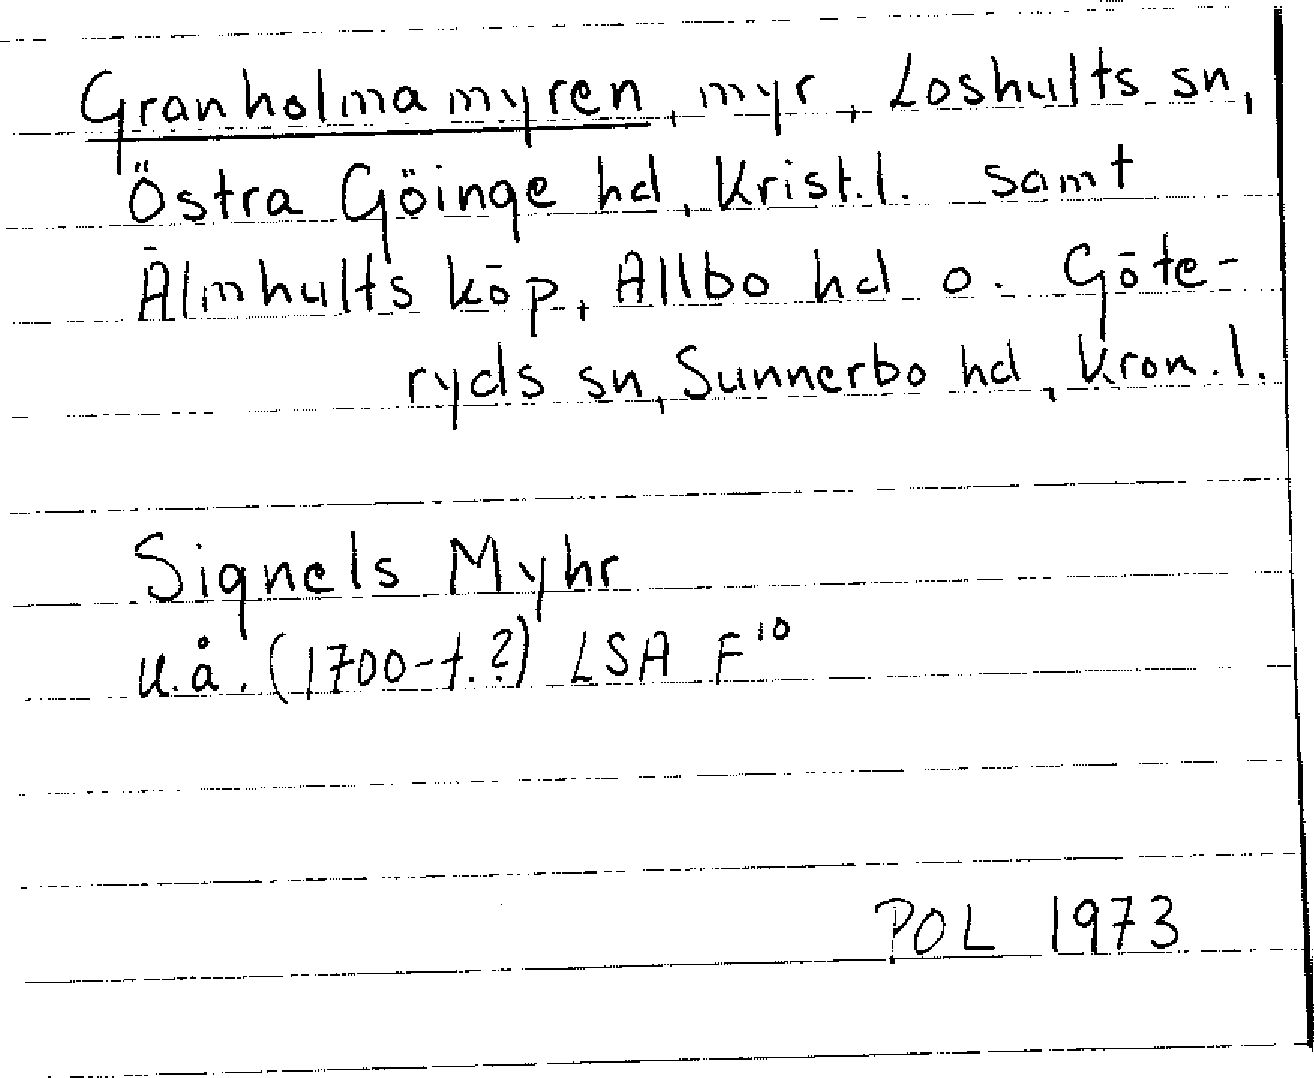 Granholmamyren, myr, Loshults sn,
Östra Göinge hd, Krist.l. samt
Älmhults köp, Allbo hd o. Göte-
ryds sn, Sunnerbo hd, Kron.l.
Signels Myhr
u.å. (1700-t.?) LSA F¹⁰
POL 1973